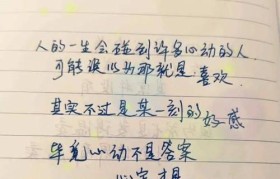 人的一生会碰到许多心动的人
可能误以为那就是喜欢
其实不过是某一刻的好感
毕竟心动不是答案
心定才是